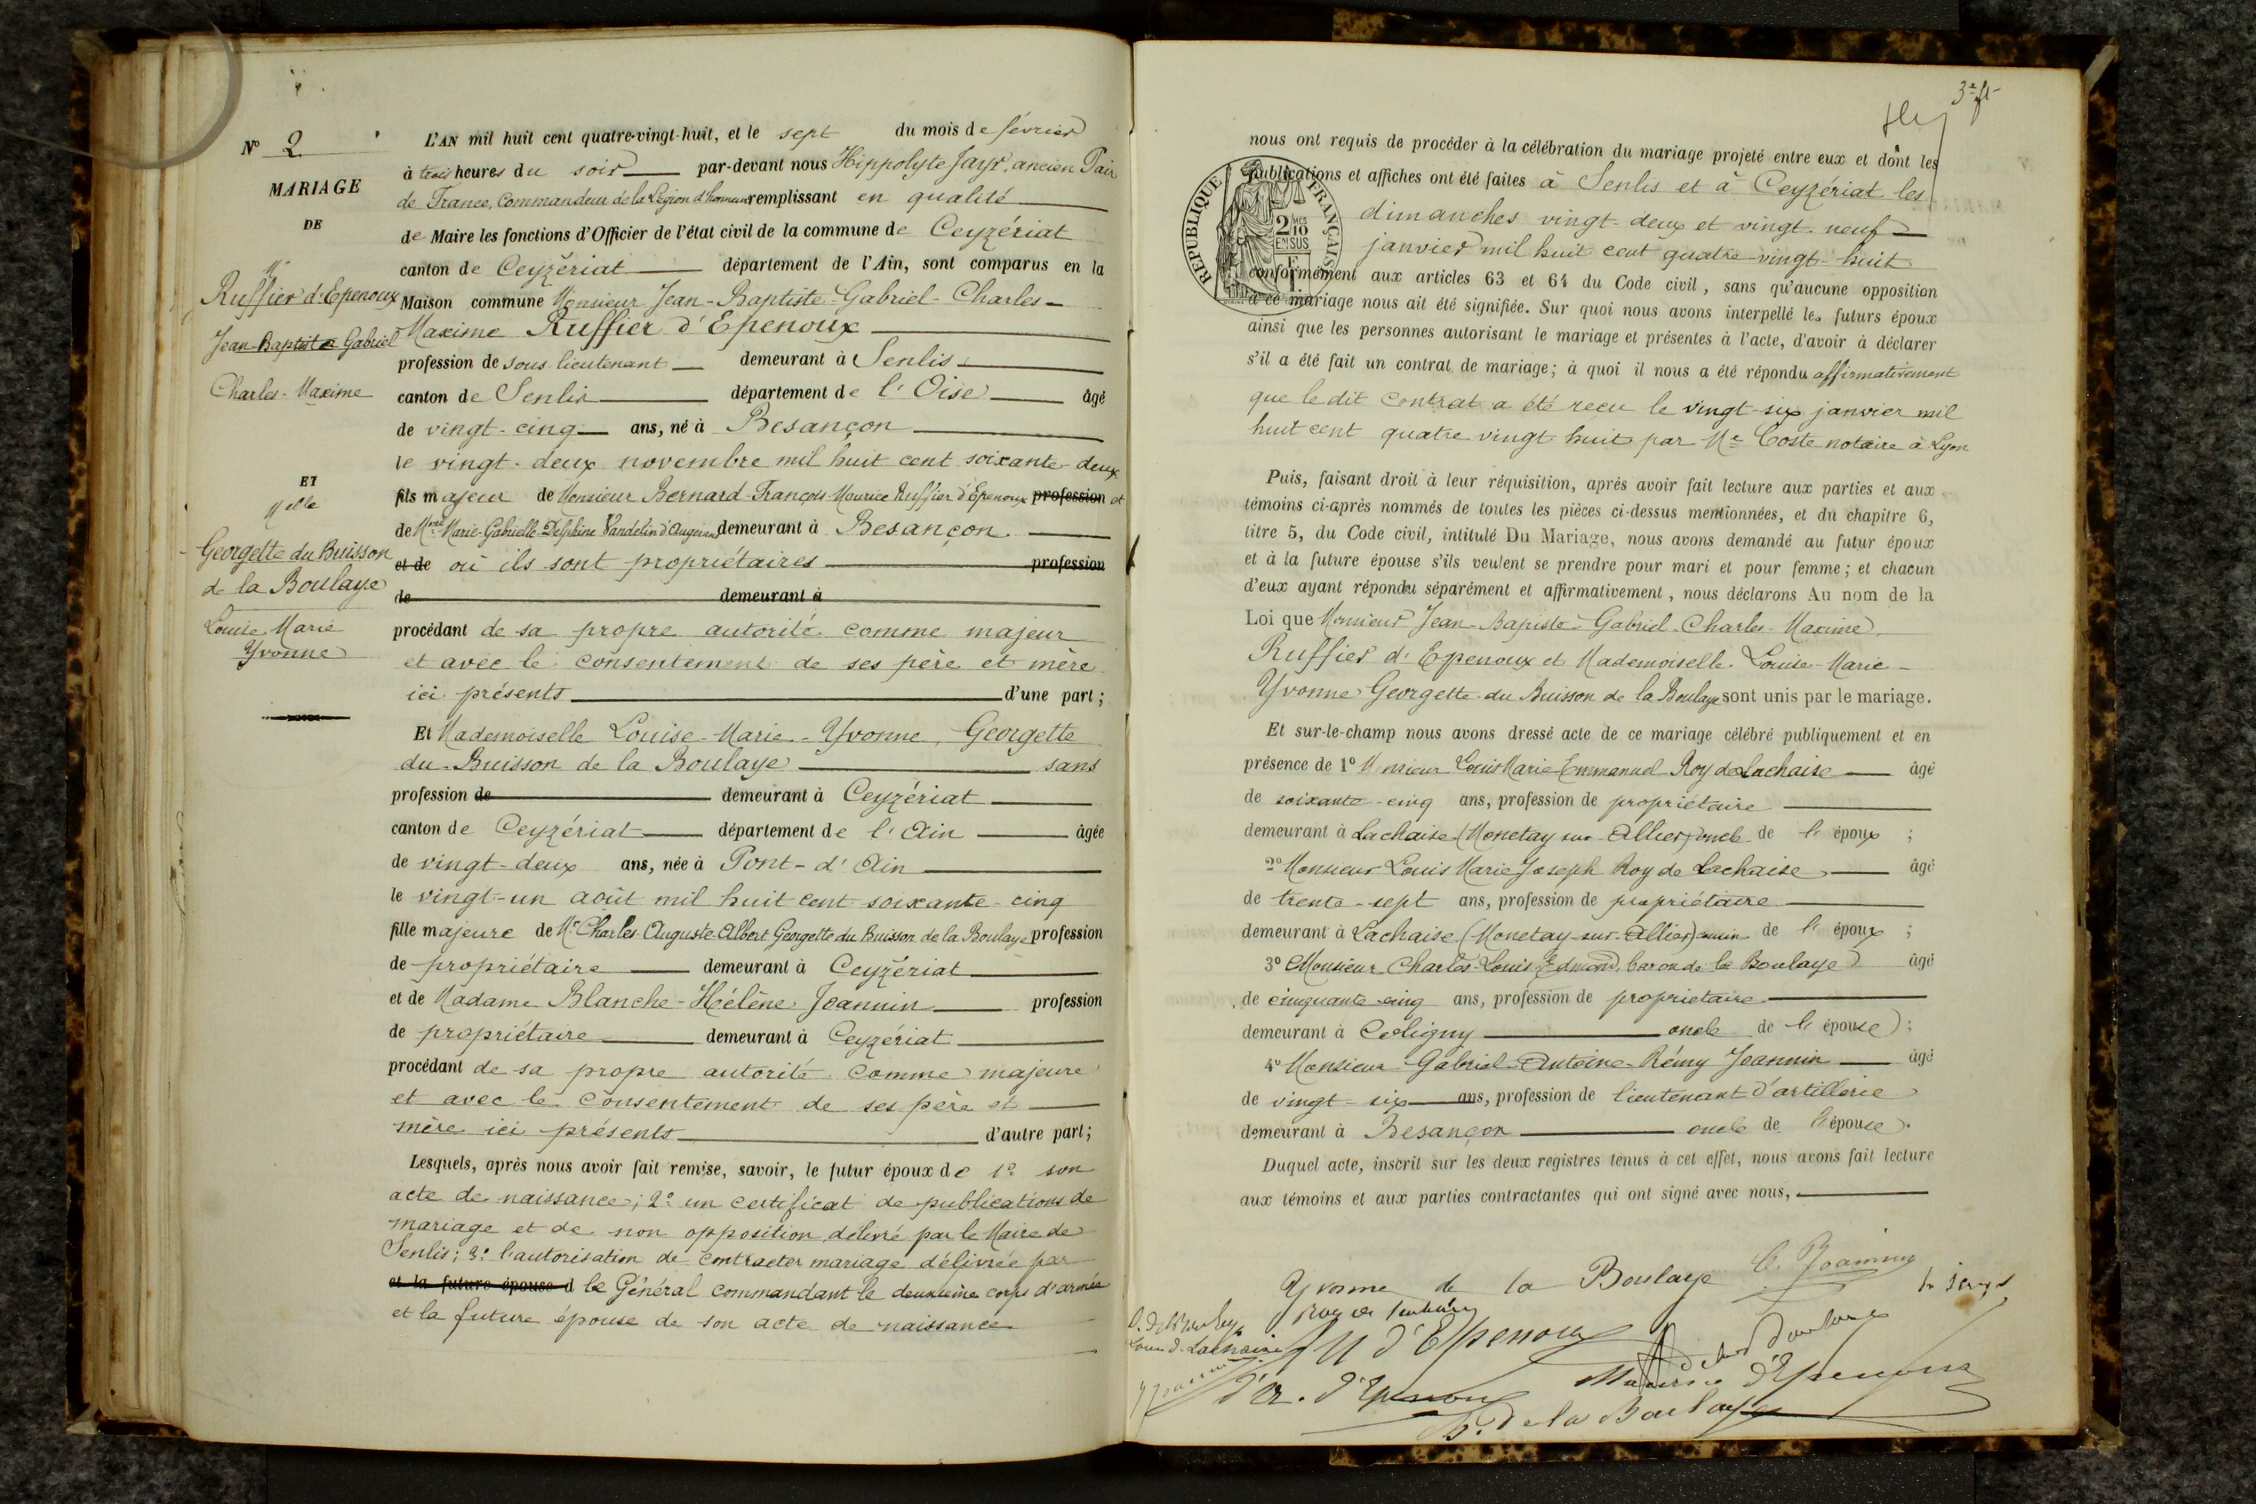 N° 2
MARIAGE
DE
Mr
Ruffier d'Epenoux
Jean-Baptiste Gabriel
Charles-Maxime
ET
Melle
Georgette du Buisson
de la Boulaye
Louise Marie
Yvonne
L'AN mil huit cent quatre-vingt-huit, et le sept du mois de février
à trois heures du soir par-devant nous Hippolyte Jayr, ancien Pair
de France, Commandeur de la Légion d'honneur remplissant en qualité
de Maire les fonctions d'Officier de l'état civil de la commune de Ceyzériat
canton de Ceyzériat département de l'Ain, sont comparus en la
Maison commune Monsieur Jean-Baptiste-Gabriel-Charles-
Maxime Ruffier d'Epenoux
profession de sous lieutenant demeurant à Senlis
canton de Senlis département de l'Oise âgé
de vingt-cinq ans, né à Besançon
le vingt-deux novembre mil huit cent soixante-deux
fils majeur de Monsieur Bernard-François-Maurice Ruffier d'Epenoux profession et
de Mme Marie-Gabrielle-Delphine Vandelin d'Augerans demeurant à Besançon
et de où ils sont propriétaires profession
de demeurant à
procédant de sa propre autorité comme majeur
et avec le consentement de ses père et mère
ici présents d'une part;
Et Mademoiselle Louise-Marie-Yvonne, Georgette
du Buisson de la Boulaye sans
profession de demeurant à Ceyzériat
canton de Ceyzériat département de l'Ain âgée
de vingt-deux ans, née à Pont-d'Ain
le vingt-un août mil huit cent soixante-cinq
fille majeure de Mr Charles-Auguste-Albert Georgette du Buisson de la Boulaye profession
de propriétaire demeurant à Ceyzériat
et de Madame Blanche-Hélène Joannin profession
de propriétaire demeurant à Ceyzériat
procédant de sa propre autorité comme majeure
et avec le consentement de ses père et
mère ici présents d'autre part;
Lesquels, après nous avoir fait remise, savoir, le futur époux de 1° son
acte de naissance; 2° un certificat de publications de
mariage et de non opposition délivré par le Maire de
Senlis; 3° l'autorisation de contracter mariage délivrée par
et la future épouse d le Général commandant le deuxième corps d'armée
et la future épouse de son acte de naissance
3e ft
nous ont requis de procéder à la célébration du mariage projeté entre eux et dont les
publications et affiches ont été faites à Senlis et à Ceyzériat les
dimanches vingt-deux et vingt-neuf
janvier mil huit cent quatre-vingt-huit
RÉPUBLIQUE FRANÇAISE
2 MES
10
EN SUS
conformément aux articles 63 et 64 du Code civil, sans qu'aucune opposition
à ce mariage nous ait été signifiée. Sur quoi nous avons interpellé les futurs époux
ainsi que les personnes autorisant le mariage et présentes à l'acte, d'avoir à déclarer
s'il a été fait un contrat de mariage; à quoi il nous a été répondu affirmativement
que le dit contrat a été reçu le vingt-six janvier mil
huit cent quatre vingt huit par Me Coste notaire à Lyon
Puis, faisant droit à leur réquisition, après avoir fait lecture aux parties et aux
témoins ci-après nommés de toutes les pièces ci-dessus mentionnées, et du chapitre 6,
titre 5, du Code civil, intitulé Du Mariage, nous avons demandé au futur époux
et à la future épouse s'ils veulent se prendre pour mari et pour femme; et chacun
d'eux ayant répondu séparément et affirmativement, nous déclarons Au nom de la
Loi que Monsieur Jean-Bapiste-Gabriel-Charles-Maxime
Ruffier d'Epenoux et Mademoiselle Louise-Marie-
Yvonne Georgette du Buisson de la Boulaye sont unis par le mariage.
Et sur-le-champ nous avons dressé acte de ce mariage célébré publiquement et en
présence de 1° Monsieur Louis Marie Emmanuel Roy de Lachaise âgé
de soixante-cinq ans, profession de propriétaire
demeurant à Lachaise (Monetay sur Allier) oncle de l'époux;
2° Monsieur Louis Marie Joseph Roy de Lachaise âgé
de trente-sept ans, profession de propriétaire
demeurant à Lachaise (Monetay-sur-Allier) cousin de l'époux;
3° Monsieur Charles-Louis Edmond, baron de la Boulaye âgé
de cinquante cinq ans, profession de propriétaire
demeurant à Coligny oncle de l'épouse;
4° Monsieur Gabriel-Antoine-Rémy Joannin âgé
de vingt-six ans, profession de lieutenant d'artillerie
demeurant à Besançon oncle de l'épouse.
Duquel acte, inscrit sur les deux registres tenus à cet effet, nous avons fait lecture
aux témoins et aux parties contractantes qui ont signé avec nous,
Yvonne de la Boulaye Joannin
h Jayr
Roy de Lachaise
M d'Epenoux
Louis de Lachaise
Maurice d'Epenoux
d'A. d'Epenoux
de la Boulaye